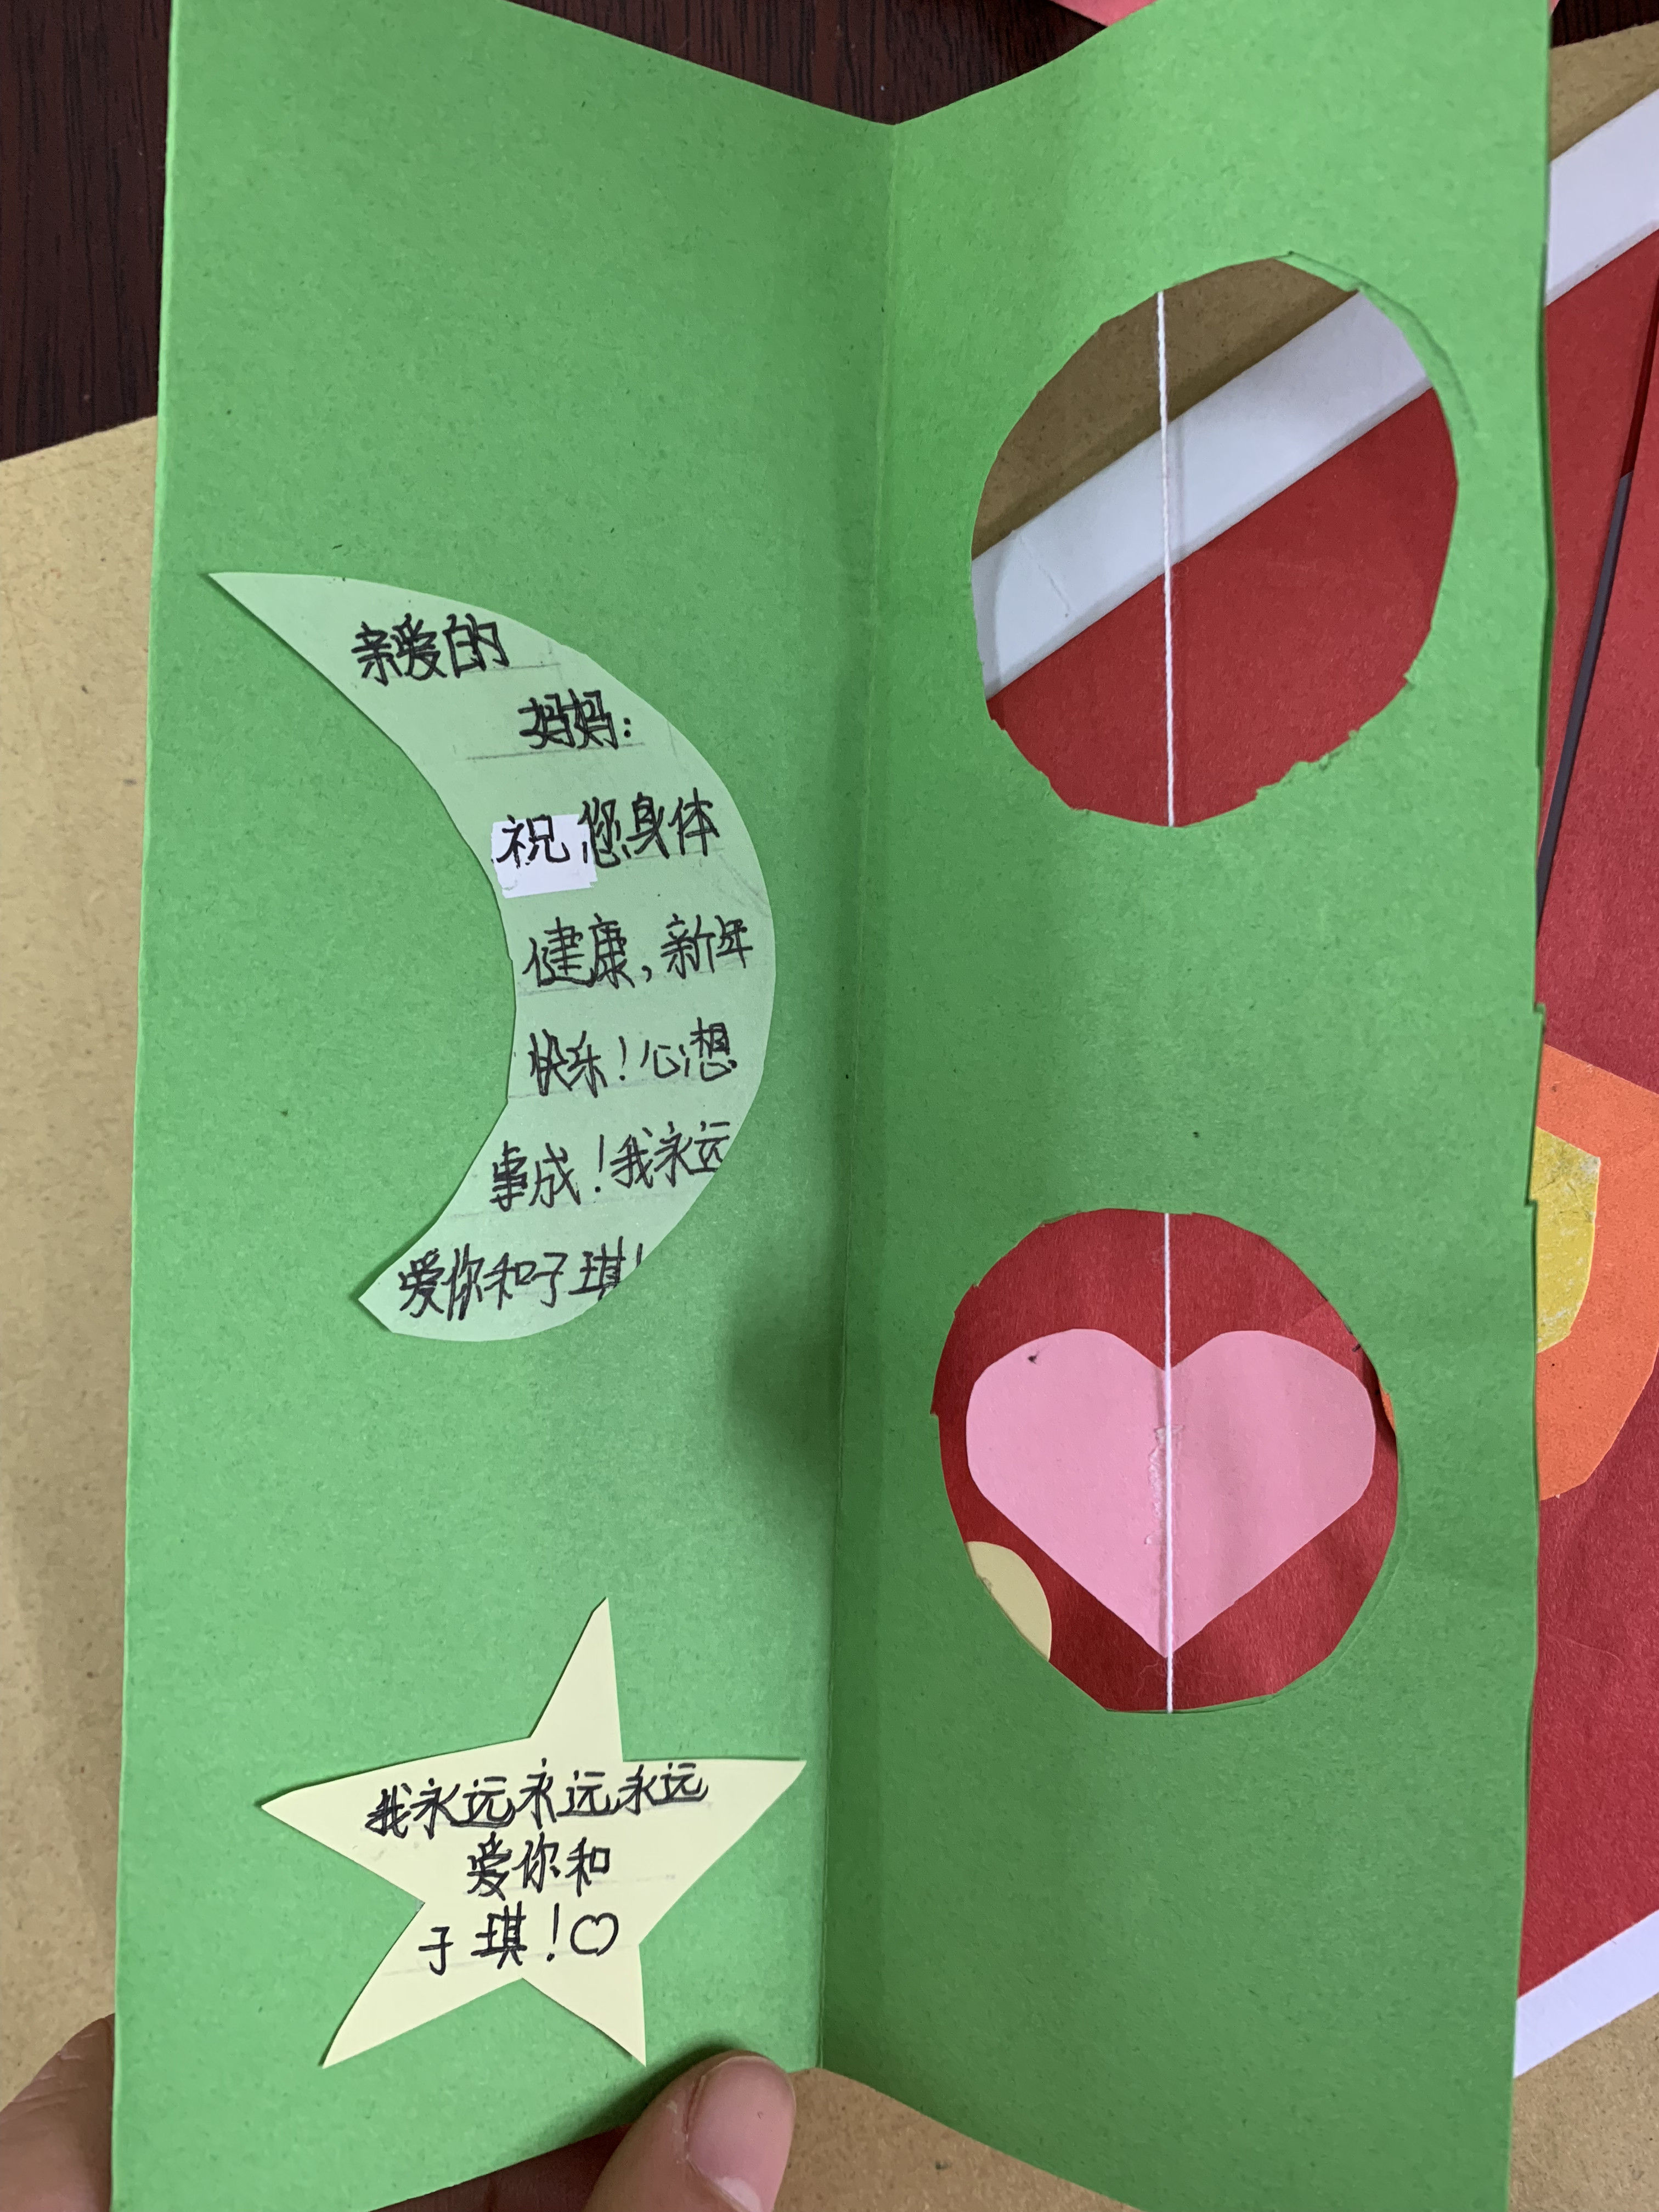 亲爱的
妈妈：
祝您身体
健康，新年
快乐！心想
事成！我永远
爱你和子琪！
我永远永远永远
爱你和
子琪！♡